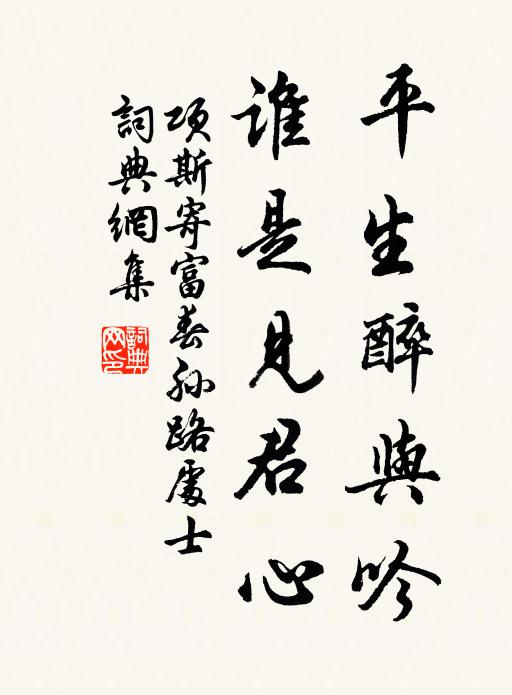 平生醉與吟
誰是見君心
項斯寄富春孙路處士
詞典網集
詞典網印